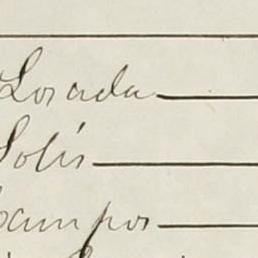 Losada
Solís
Campos